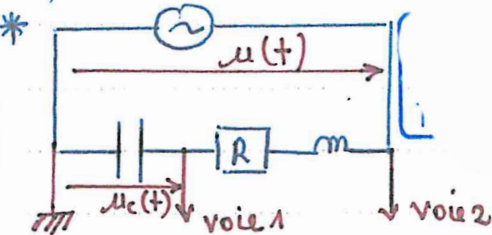 *
~
u(t)
R
uc(t)
voie 1
voie 2